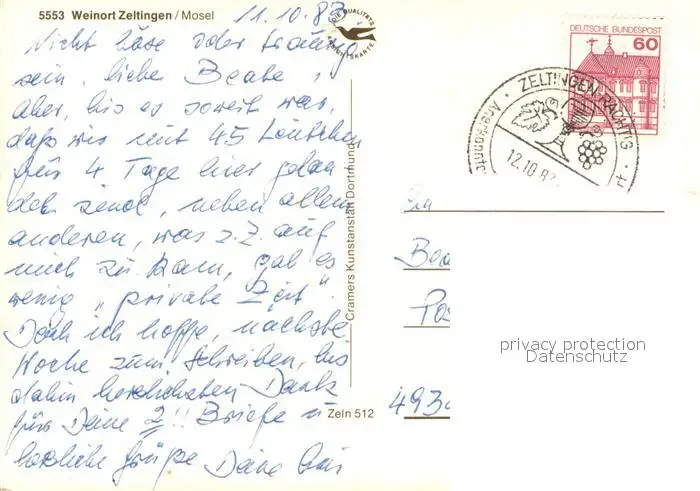 5553 Weinort Zeltingen / Mosel
11.10.83
DIE QUALITÄTS
ANSICHTSKARTE
DEUTSCHE BUNDESPOST
60
ZELTINGEN-RACHTIG
12.10.83
Nicht böse oder traurig
sein, liebe Beate,
aber, bis es soweit war,
daß wir mit 45 Leutchen
für 4 Tage hier gelan
det sind, neben allem
anderen, was z.Z. auf
mich zu kam, gab es
wenig "private Zeit".
Doch ich hoffe, nächste
Woche zum Schreiben, bis
dahin herzlichsten Dank
für Deine 2!! Briefe u
herzliche Grüße Deine
Cramers Kunstanstalt Dortmund
Zeln 512
An
Bea
Pos
493
privacy protection
Datenschutz